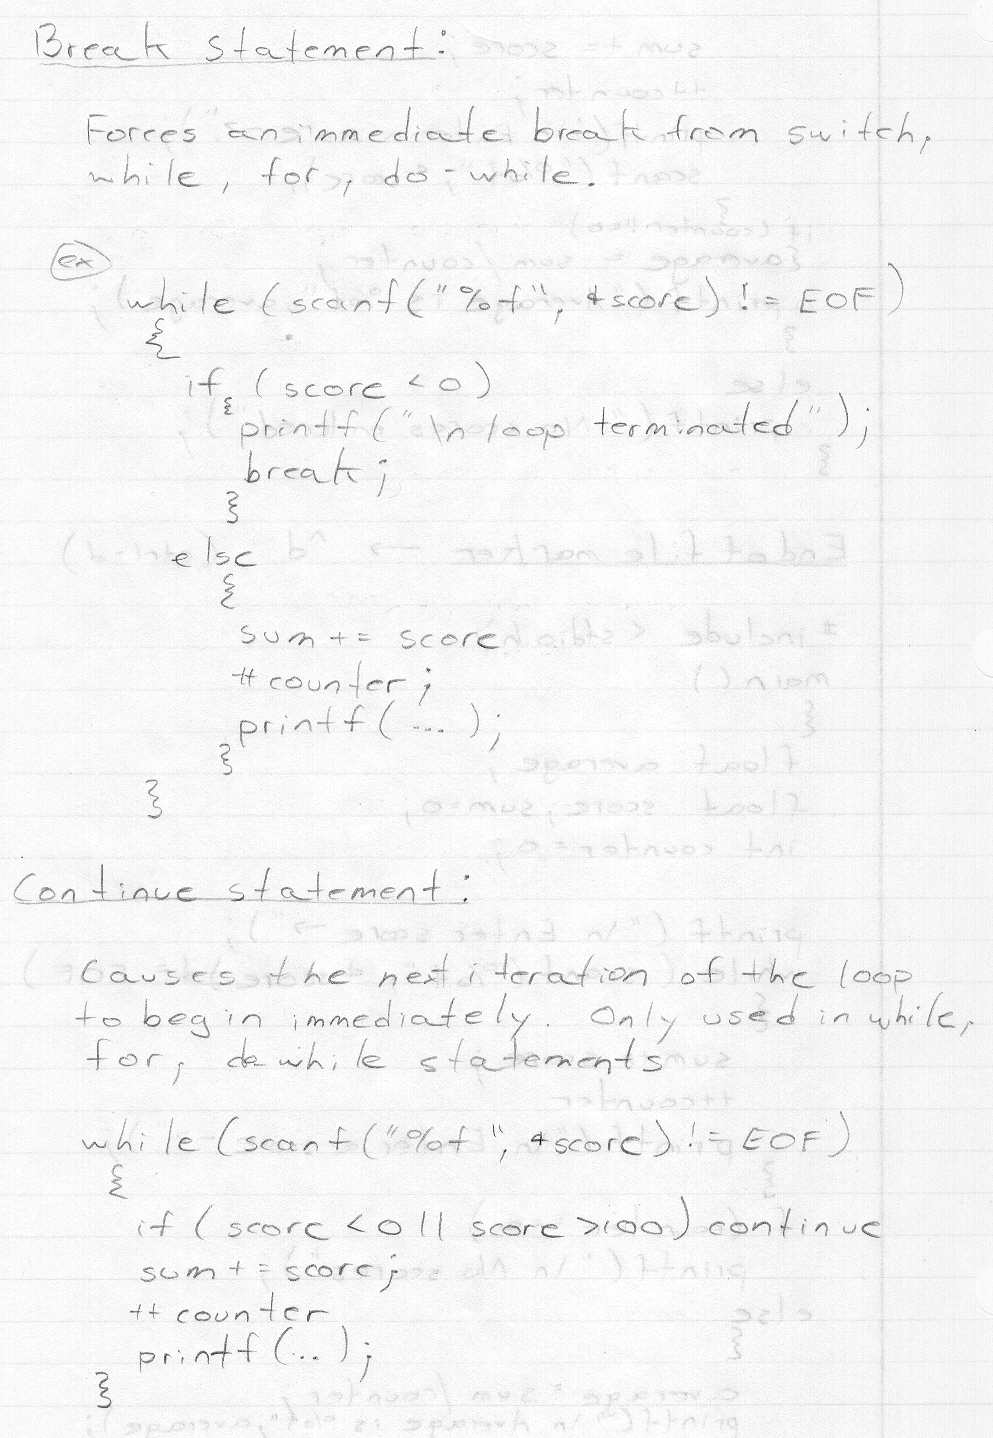 Break statement:
Forces an immediate break from switch,
while, for, do-while.
ex
while (scanf("%f", &score) != EOF)
{
if (score < 0)
{
printf("\n loop terminated");
break;
}
else
{
sum += score
++counter;
printf(...);
}
}
Continue statement:
Causes the next iteration of the loop
to begin immediately. Only used in while,
for, do-while statements
while (scanf("%f", &score) != EOF)
{
if (score < 0 || score > 100) continue
sum += score;
++counter
printf(..);
}